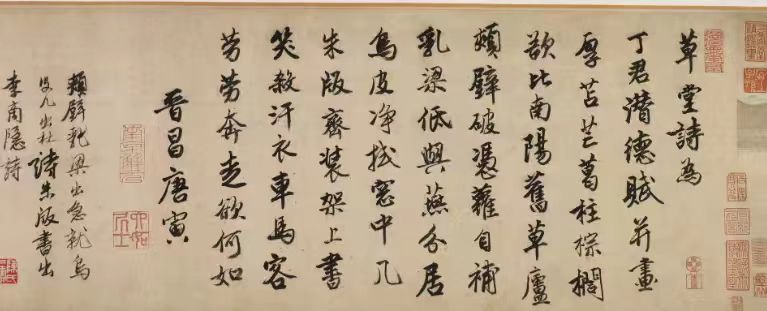 草堂詩為
丁君潛德賦并畫
厚苫芒葛柱棕櫚
欲比南陽舊草廬
頹壁破憑蘿自補
乳梁低與燕分居
烏皮净拭窓中几
朱版齊裝架上書
笑殺汗衣車馬客
勞勞奔走欲何如
晉昌唐寅
六如居士
頹壁乳梁出急就烏
皮几出杜詩朱版書出
李商隱詩